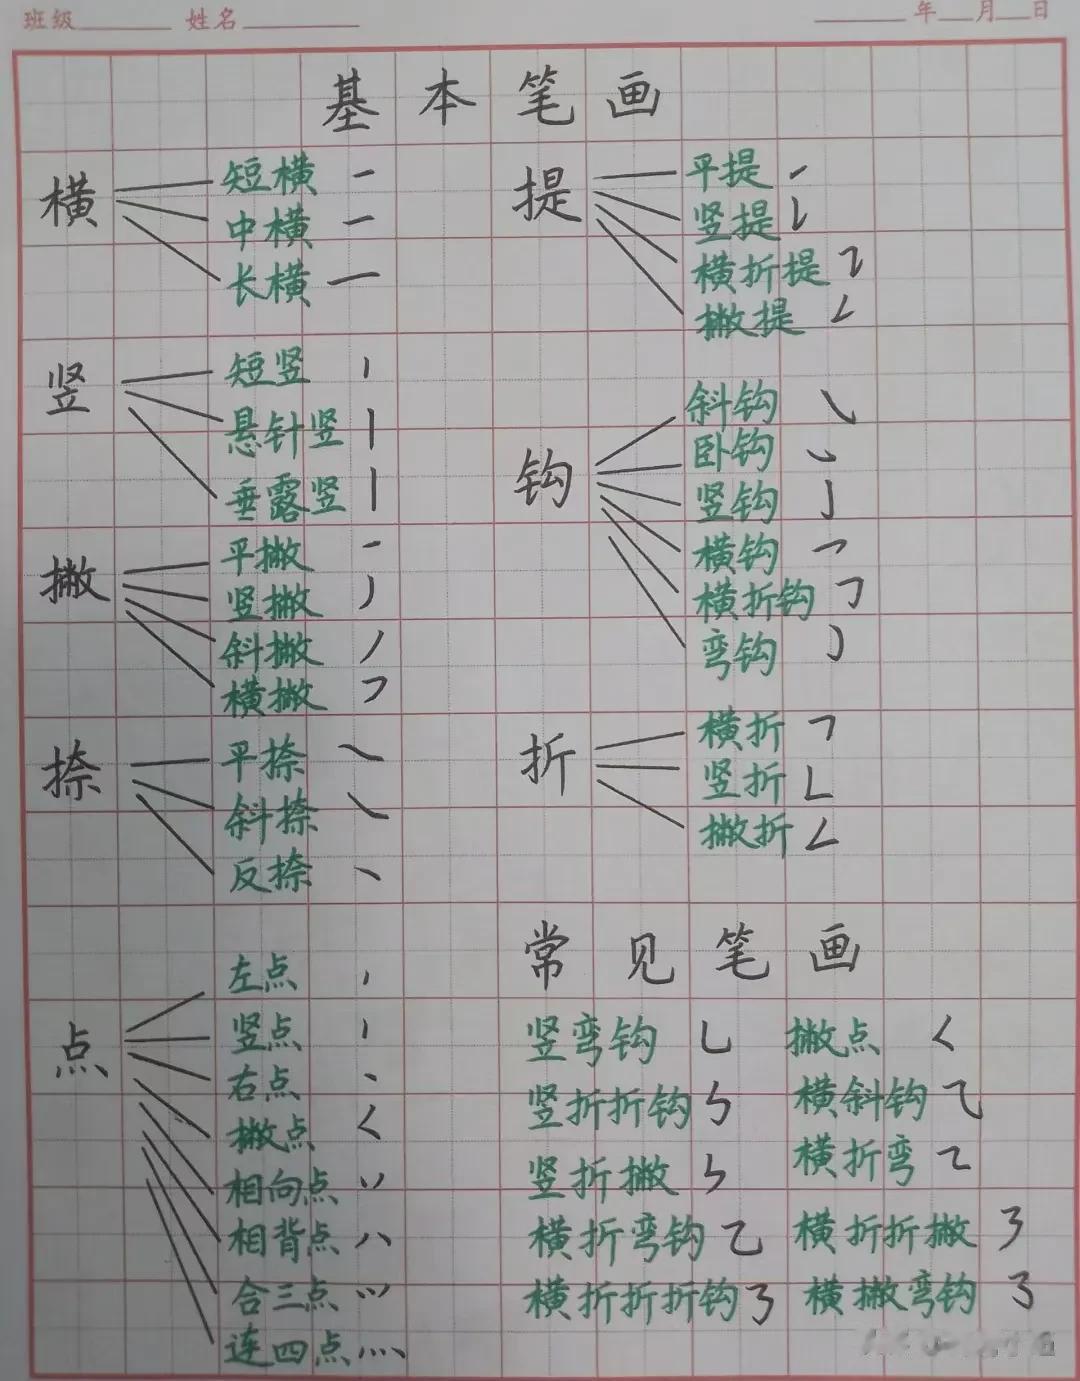 班级 姓名 年 月 日
基本笔画
横
短横 一
中横 一
长横 一
竖
短竖 丨
悬针竖 丨
垂露竖 丨
撇
平撇 ㇒
竖撇 丿
斜撇 丿
横撇 ㇇
捺
平捺 ㇏
斜捺 ㇏
反捺 ㇔
点
左点
竖点
右点 丶
撇点 ㇛
相向点 丷
相背点 八
合三点
连四点 灬
提
平提 ㇀
竖提 ㇙
横折提 ㇊
撇提 ㇜
钩
斜钩 ㇂
卧钩 ㇃
竖钩 亅
横钩 ㇖
横折钩 ㇆
弯钩 ㇁
折
横折 ㇕
竖折 ㇗
撇折 ㇜
常见笔画
竖弯钩 乚 撇点 ㇛
竖折折钩 ㇉ 横斜钩 ⺄
竖折撇 ㇞ 横折弯 ㇍
横折弯钩 乙 横折折撇 ㇋
横折折折钩 ㇡ 横撇弯钩 ㇌